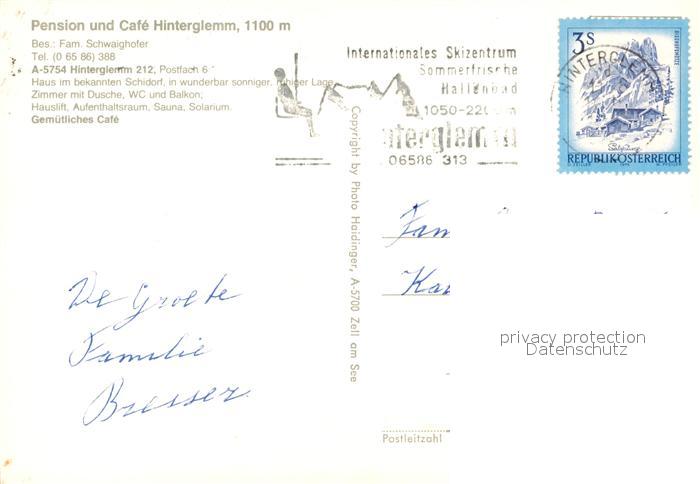 Pension und Café Hinterglemm, 1100 m
Bes.: Fam. Schwaighofer
Tel. (0 65 86) 388
A-5754 Hinterglemm 212, Postfach 6
Haus im bekannten Schidorf, in wunderbar sonniger, ruhiger Lage,
Zimmer mit Dusche, WC und Balkon;
Hauslift, Aufenthaltsraum, Sauna, Solarium.
Gemütliches Café
Internationales Skizentrum
Sommerfrische
Hallenbad
1050-2200 m
Hinterglemm
06586 313
HINTERGLEMM
3S
BISCHOFSMÜTZE
Salzburg
REPUBLIK ÖSTERREICH
Copyright by Photo Haidinger, A-5700 Zell am See
Fam
De Groete
Familie
Bresser
privacy protection
Datenschutz
Postleitzahl